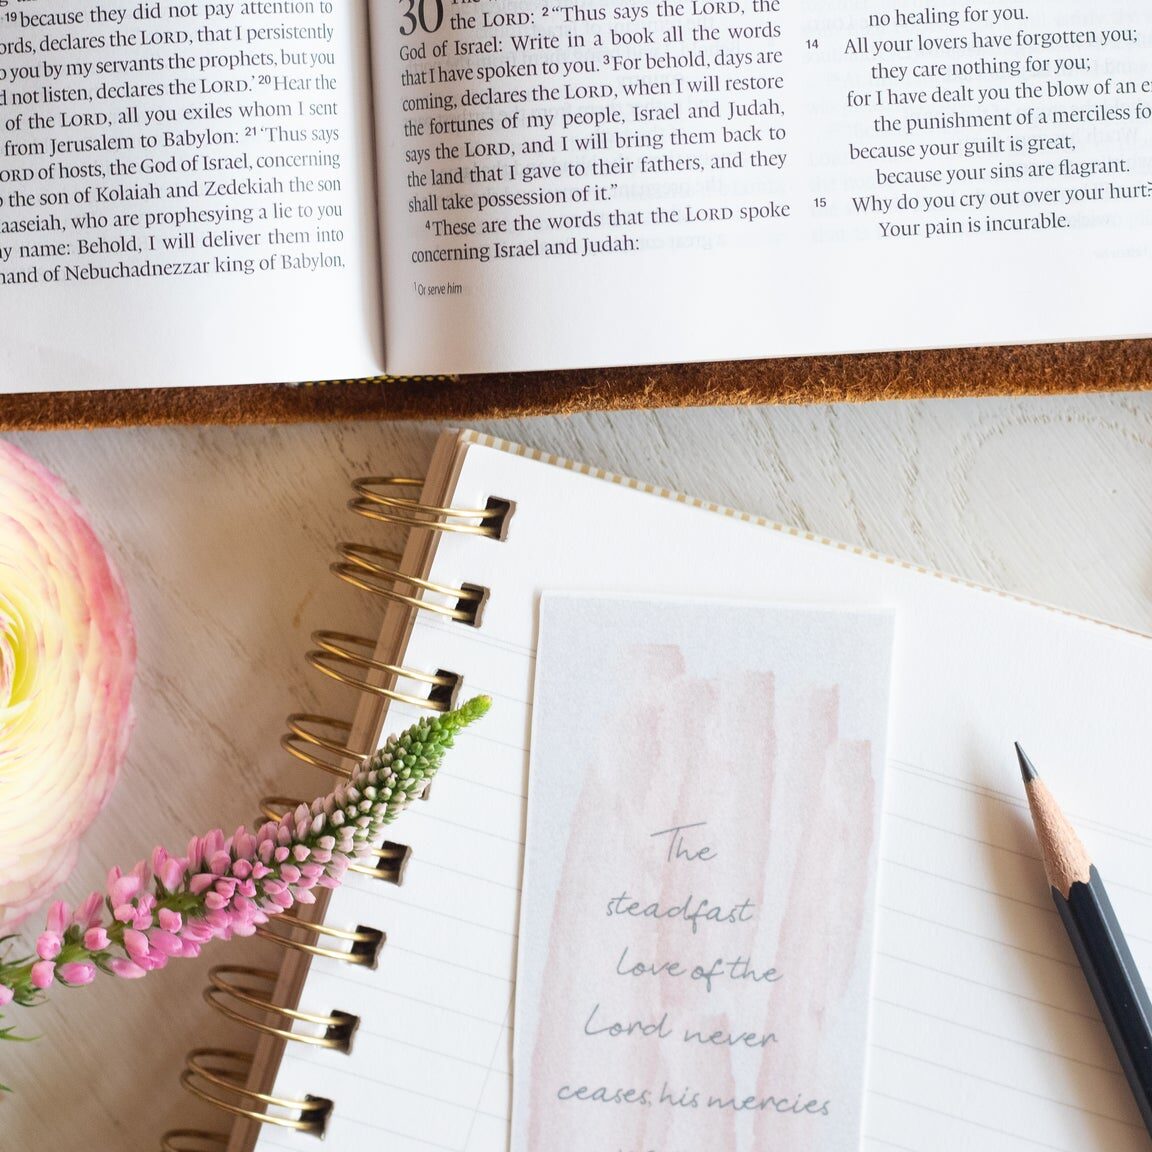 19 because they did not pay attention to
declares the LORD, that I persistently
you by my servants the prophets, but you
not listen, declares the LORD.’ 20 Hear the
of the LORD, all you exiles whom I sent
from Jerusalem to Babylon: 21 ‘Thus says
of hosts, the God of Israel, concerning
the son of Kolaiah and Zedekiah the son
who are prophesying a lie to you
name: Behold, I will deliver them into
of Nebuchadnezzar king of Babylon,
30 the LORD: 2 “Thus says the LORD, the
God of Israel: Write in a book all the words
that I have spoken to you. 3 For behold, days are
coming, declares the LORD, when I will restore
the fortunes of my people, Israel and Judah,
says the LORD, and I will bring them back to
the land that I gave to their fathers, and they
shall take possession of it.”
4 These are the words that the LORD spoke
concerning Israel and Judah:
1 Or serve him
no healing for you.
14 All your lovers have forgotten you;
they care nothing for you;
for I have dealt you the blow of an
the punishment of a merciless
because your guilt is great,
because your sins are flagrant.
15 Why do you cry out over your hurt?
Your pain is incurable.
The
steadfast
love of the
Lord never
ceases; his mercies